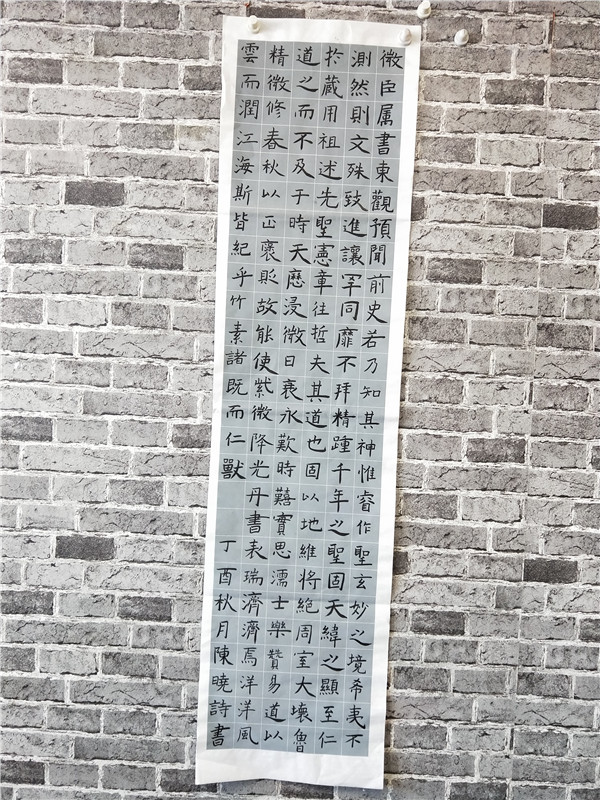 微臣属書東觀預聞前史若乃知其神惟睿作聖玄妙之境希夷不
測然則文殊致進讓罕同靡不拜精踵千年之聖固天緯之顯至仁
扵蔵用祖述先聖憲章往哲夫其道也固以地維將絕周室大壞魯
道之而不及于時天歷浸微日衰永歎時囏實思濡士樂贊易道以
精微修春秋以正褒貶故能使紫微降光丹書表瑞濟濟焉洋洋風
雲而潤江海斯皆紀乎竹素諸既而仁獸
丁酉秋月陳曉詩書